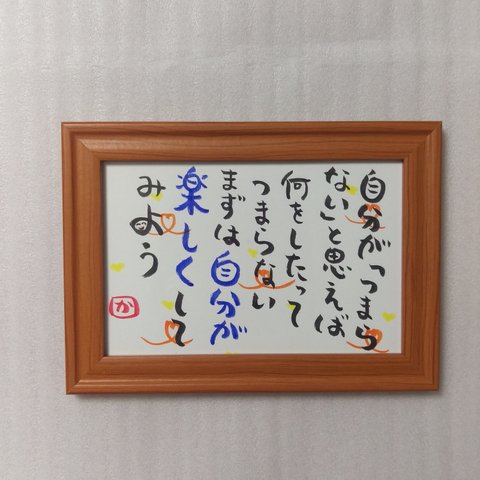 自分が「つまら
ない」と思えば
何をしたって
つまらない
まずは自分が
楽しくして
みよう
か